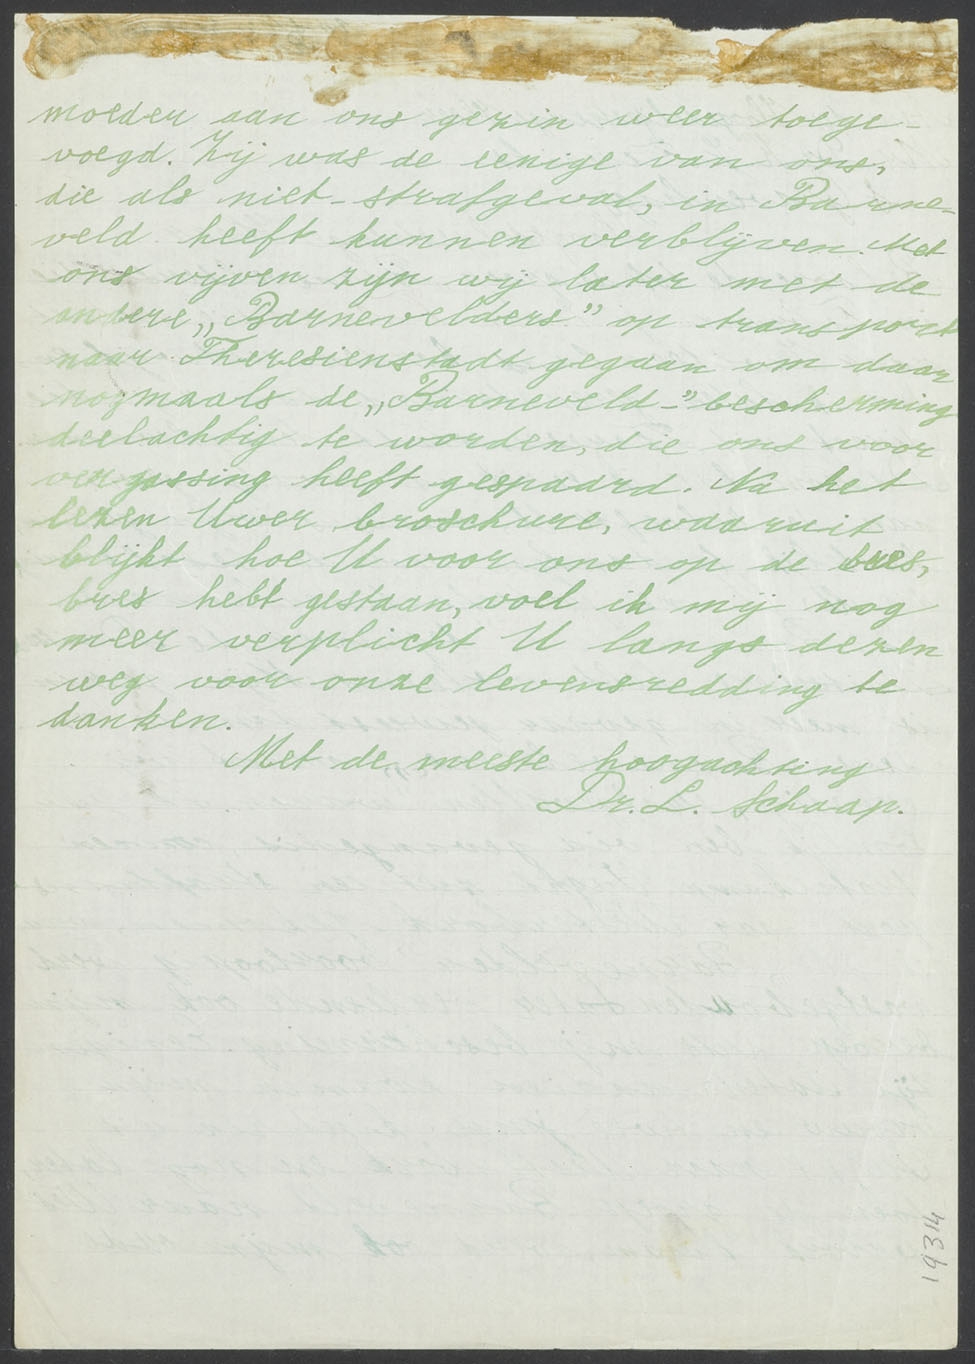 moeder aan ons gezin weer toege-
voegd. Zij was de eenige van ons,
die als niet-strafgeval, in Barne-
veld heeft kunnen verblijven. Met
ons vijven zijn wij later met de
andere „Barnevelders” op transport
naar Theresienstadt gegaan om daar
nogmaals de „Barneveld-” bescherming
deelachtig te worden, die ons voor
vergassing heeft gespaard. Na het
lezen Uwer broschure, waaruit
blijkt hoe U voor ons op de bres,
bres hebt gestaan, voel ik mij nog
meer verplicht U langs dezen
weg voor onze levensredding te
danken.
Met de meeste hoogachting
Dr. L. Schaap.
19314